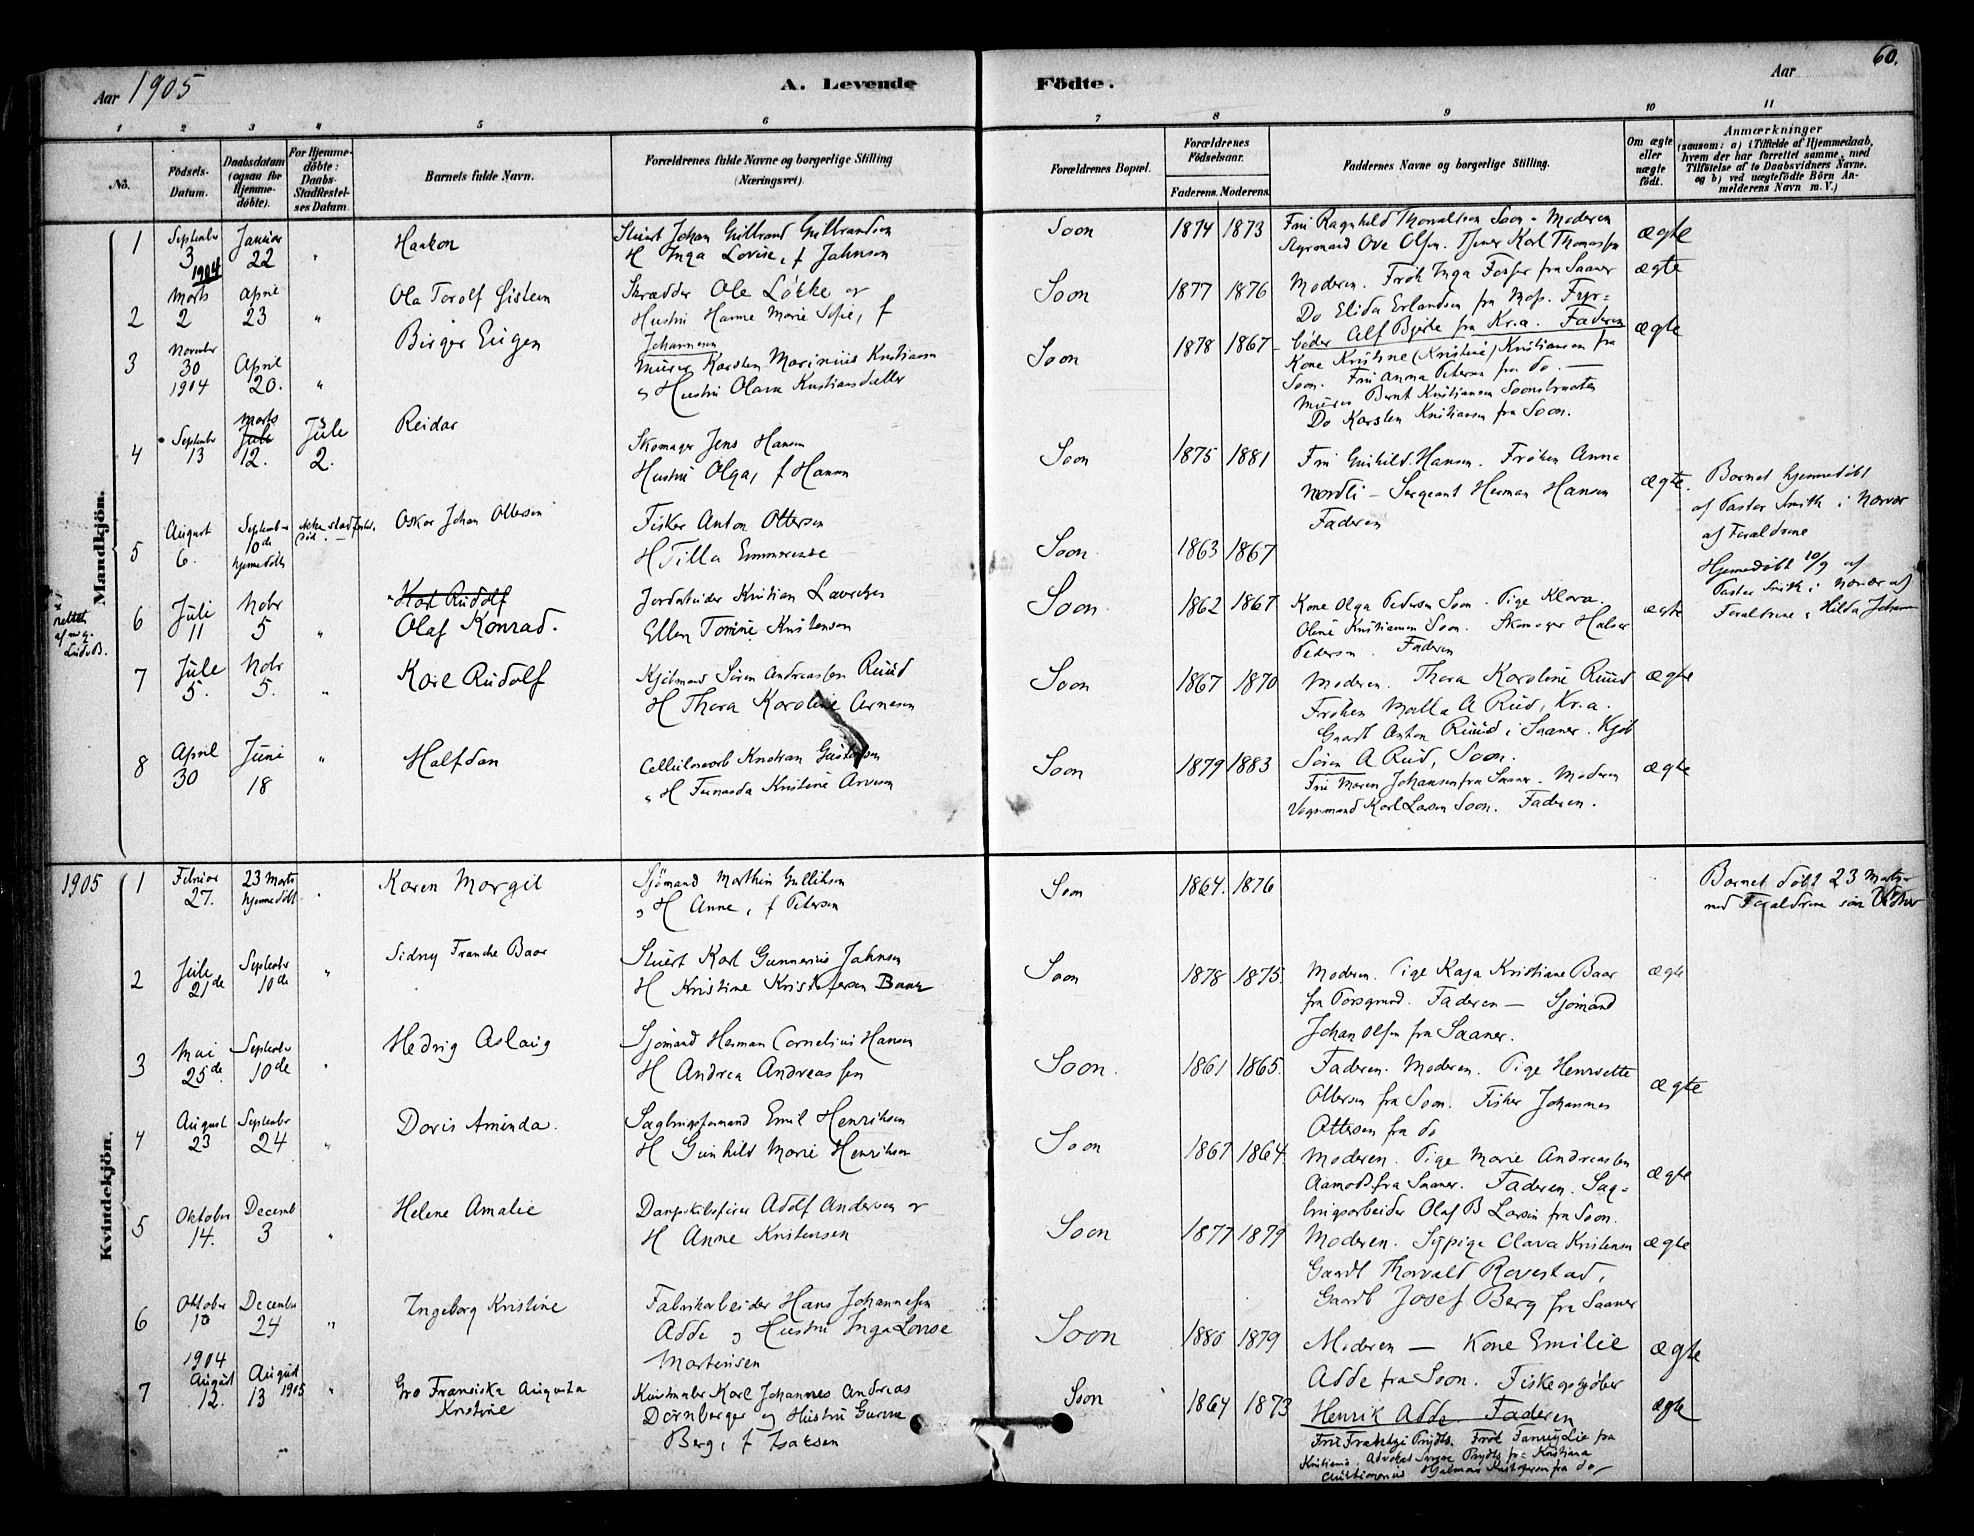 60.
Aar 1905
A. Levende Födte.
Aar
1 2 3 4 5 6 7 8 9 10 11
No.
Födsels-Datum.
Daabsdatum (ogsaa for Hjemme-döbte).
For Hjemme-döbte: Daabs-Stadfæstel-ses Datum.
Barnets fulde Navn.
Forældrenes fulde Navne og borgerlige Stilling (Næringsvei).
Forældrenes Bopæl.
Forældrenes Födselsaar.
Faderens. Moderens.
Faddernes Navne og borgerlige Stilling.
Om ægte eller uægte født.
Anmærkninger
(saasom: a) i Tilfælde af Hjemmedaab,
hvem der har forrettet samme, med
Tilföielse af to Daabsvidners Navne.
og b) ved uægtefödte Börn An-
melderens Navn m. V.)
Mandkjön.
1 September 3 1904 Januar 22 " Haakon
Stuert Johan Gulbrand Gulbrandsen
H Inga Lovise, f Jahnsen
Soon 1874 1873
Fru Ragnhild Thorvaldsen Soon - Moderen
Styrmand Ove Olsen. Karl Thomassen
ægte
2 Marts 2 April 23 " Ola Torolf Eistein
Skrædder Ole Løkke og
Hustru Hanne Marie Sofie, f
Johannesen
Soon 1877 1876
Moderen. Frøk Inga Fosser fra Saaner
Do Elida Erlandsen fra Moss. Fyr-
bøder Alf Bjerke fra Kr.a. Faderen
ægte
3 November 30 1904 April 20. " Birger Eugen
Murer Karsten Marinius Kristiansen
og Hustru Olava Kristiansdatter
Soon 1878 1867
Kone Kristine (Kristine) Kristiansen fra
Soon. Fru Anna Petersen fra do. —
Murer Bernt Kristiansen Soonsbruket
Do Karsten Kristiansen fra Soon.
ægte
4 September 13 Marts Juli 12. Juli 2. Reidar
Skomager Jens Hansen
Hustru Olga, f Hansen
Soon 1875 1881
Fru Gunhild Hansen. Frøken Anna
Nordli - Sergeant Herman Hansen
Faderen
ægte.
Barnet hjemmedøbt
af Pastor Smith i Nærvær
af Forældrene
5 August 6. September 10de hjemmedøbt Oskar Johan Ottersen
Fisker Anton Ottersen
H Tilla Emmerense
Soon 1863 1867
Hjemmedøbt 10/9 af
Pastor Smith i Nærvær af
Forældrene &amp; Hilda Johan
x rettet af
6 Juli 11 Nobr 5 " Karl Rudolf
Olaf Konrad.
Jordarbeider Kristian Lauritzen
Ellen Tomine Kristensen
Soon 1862 1867
Kone Olga Pedersen Soon. Pige Klara.
Oline Kristiansen Soon. Skomager Halvor
Pedersen. Faderen
ægte
7 Juli 5. Nobr 5. " Karl Rudolf
Kjøbmand Sören Andreassen Ruud
H Thora Karoline Arnesen
Soon 1867 1870
Moderen. Thora Karoline Ruud
Frøken Malla A Rud, Kr.a.
Gaardb Anton Ruud i Saaner. Kjøb
Sören A Rud, Soon.
ægte
8 April 30 Juni 18 " Halfdan
Cellulosearb Kristian Gustavsen
" H Fernanda Kristine Arnesen
Soon 1879 1883
Fru Maren Johansen fra Saaner - Moderen
Vognmand Karl Larsen Soon. Faderen.
ægte
Kvindekjön.
1905 1 Februar 27. 23 Marts hjemmedøbt " Karen Margit
Sjömand Marthin Gulliksen
og H Anne, f Petersen
Soon 1864. 1876
Barnet døbt 23 Marts
med Forældrene som Vidner
2 Juli 21de September 10de " Sidny Francke Baar
Stuert Karl Gunnerius Jahnsen
H Kristine Kristofersen Baar
Soon 1878 1875.
Moderen. Pige Kaja Kristiane Baar
fra Porsgrund. Faderen — Sjömand
Johan Olsen fra Saaner.
ægte
3 Mai 25de September 10de " Hedvig Aslaug
Sjömand Herman Cornelius Hansen
H Andrea Andreassen
Soon. 1861 1865.
Faderen. Moderen. Pige Henriette
Ottersen fra Soon. Fisker Johannes
Ottersen fra do
ægte
4 August 23 September 24 " Doris Aminda.
Sagbrugsformand Emil Henriksen
H Gunhild Marie Henriksen
Soon 1867 1864.
Moderen. Pige Marie Andreassen
Aamodt fra Saaner. Faderen. Sag-
brugsarbeider Olaf B Larsen fra Soon.
ægte
5 Oktober 14. Decemb 3 " Helene Amalie
Dampskibsfører Adolf Andersen og
H Anne Kristensen
Soon 1877 1879
Moderen. Sypige Clara Kristensen
Gaardb Thorvald Rovestad,
Gaardb Josef Berg fra Saaner
ægte
6 Oktober 10 December 24 " Ingeborg Kristine
Fabrikarbeider Hans Johannesen
Adde og Hustru Inga Lovise
Martinsen
Soon 1880 1879
Moderen — Kone Emilie
Adde fra Soon. Fiskeopkjøber
Henrik Adde Faderen
ægte
7 1904 August 12. August 13 1905 " Gro Fransiska Augusta
Kristine
Kunstmaler Karl Johannes Andreas
Dørnberger og Hustru Gunne
Berg, f Isaksen
Soon 1864 1873
Prydts. Frøk Fanny Lie fra
Kristiania. Advokat Prydts fra Kristiania
Hjalmar Kristofersen fra do
ægte